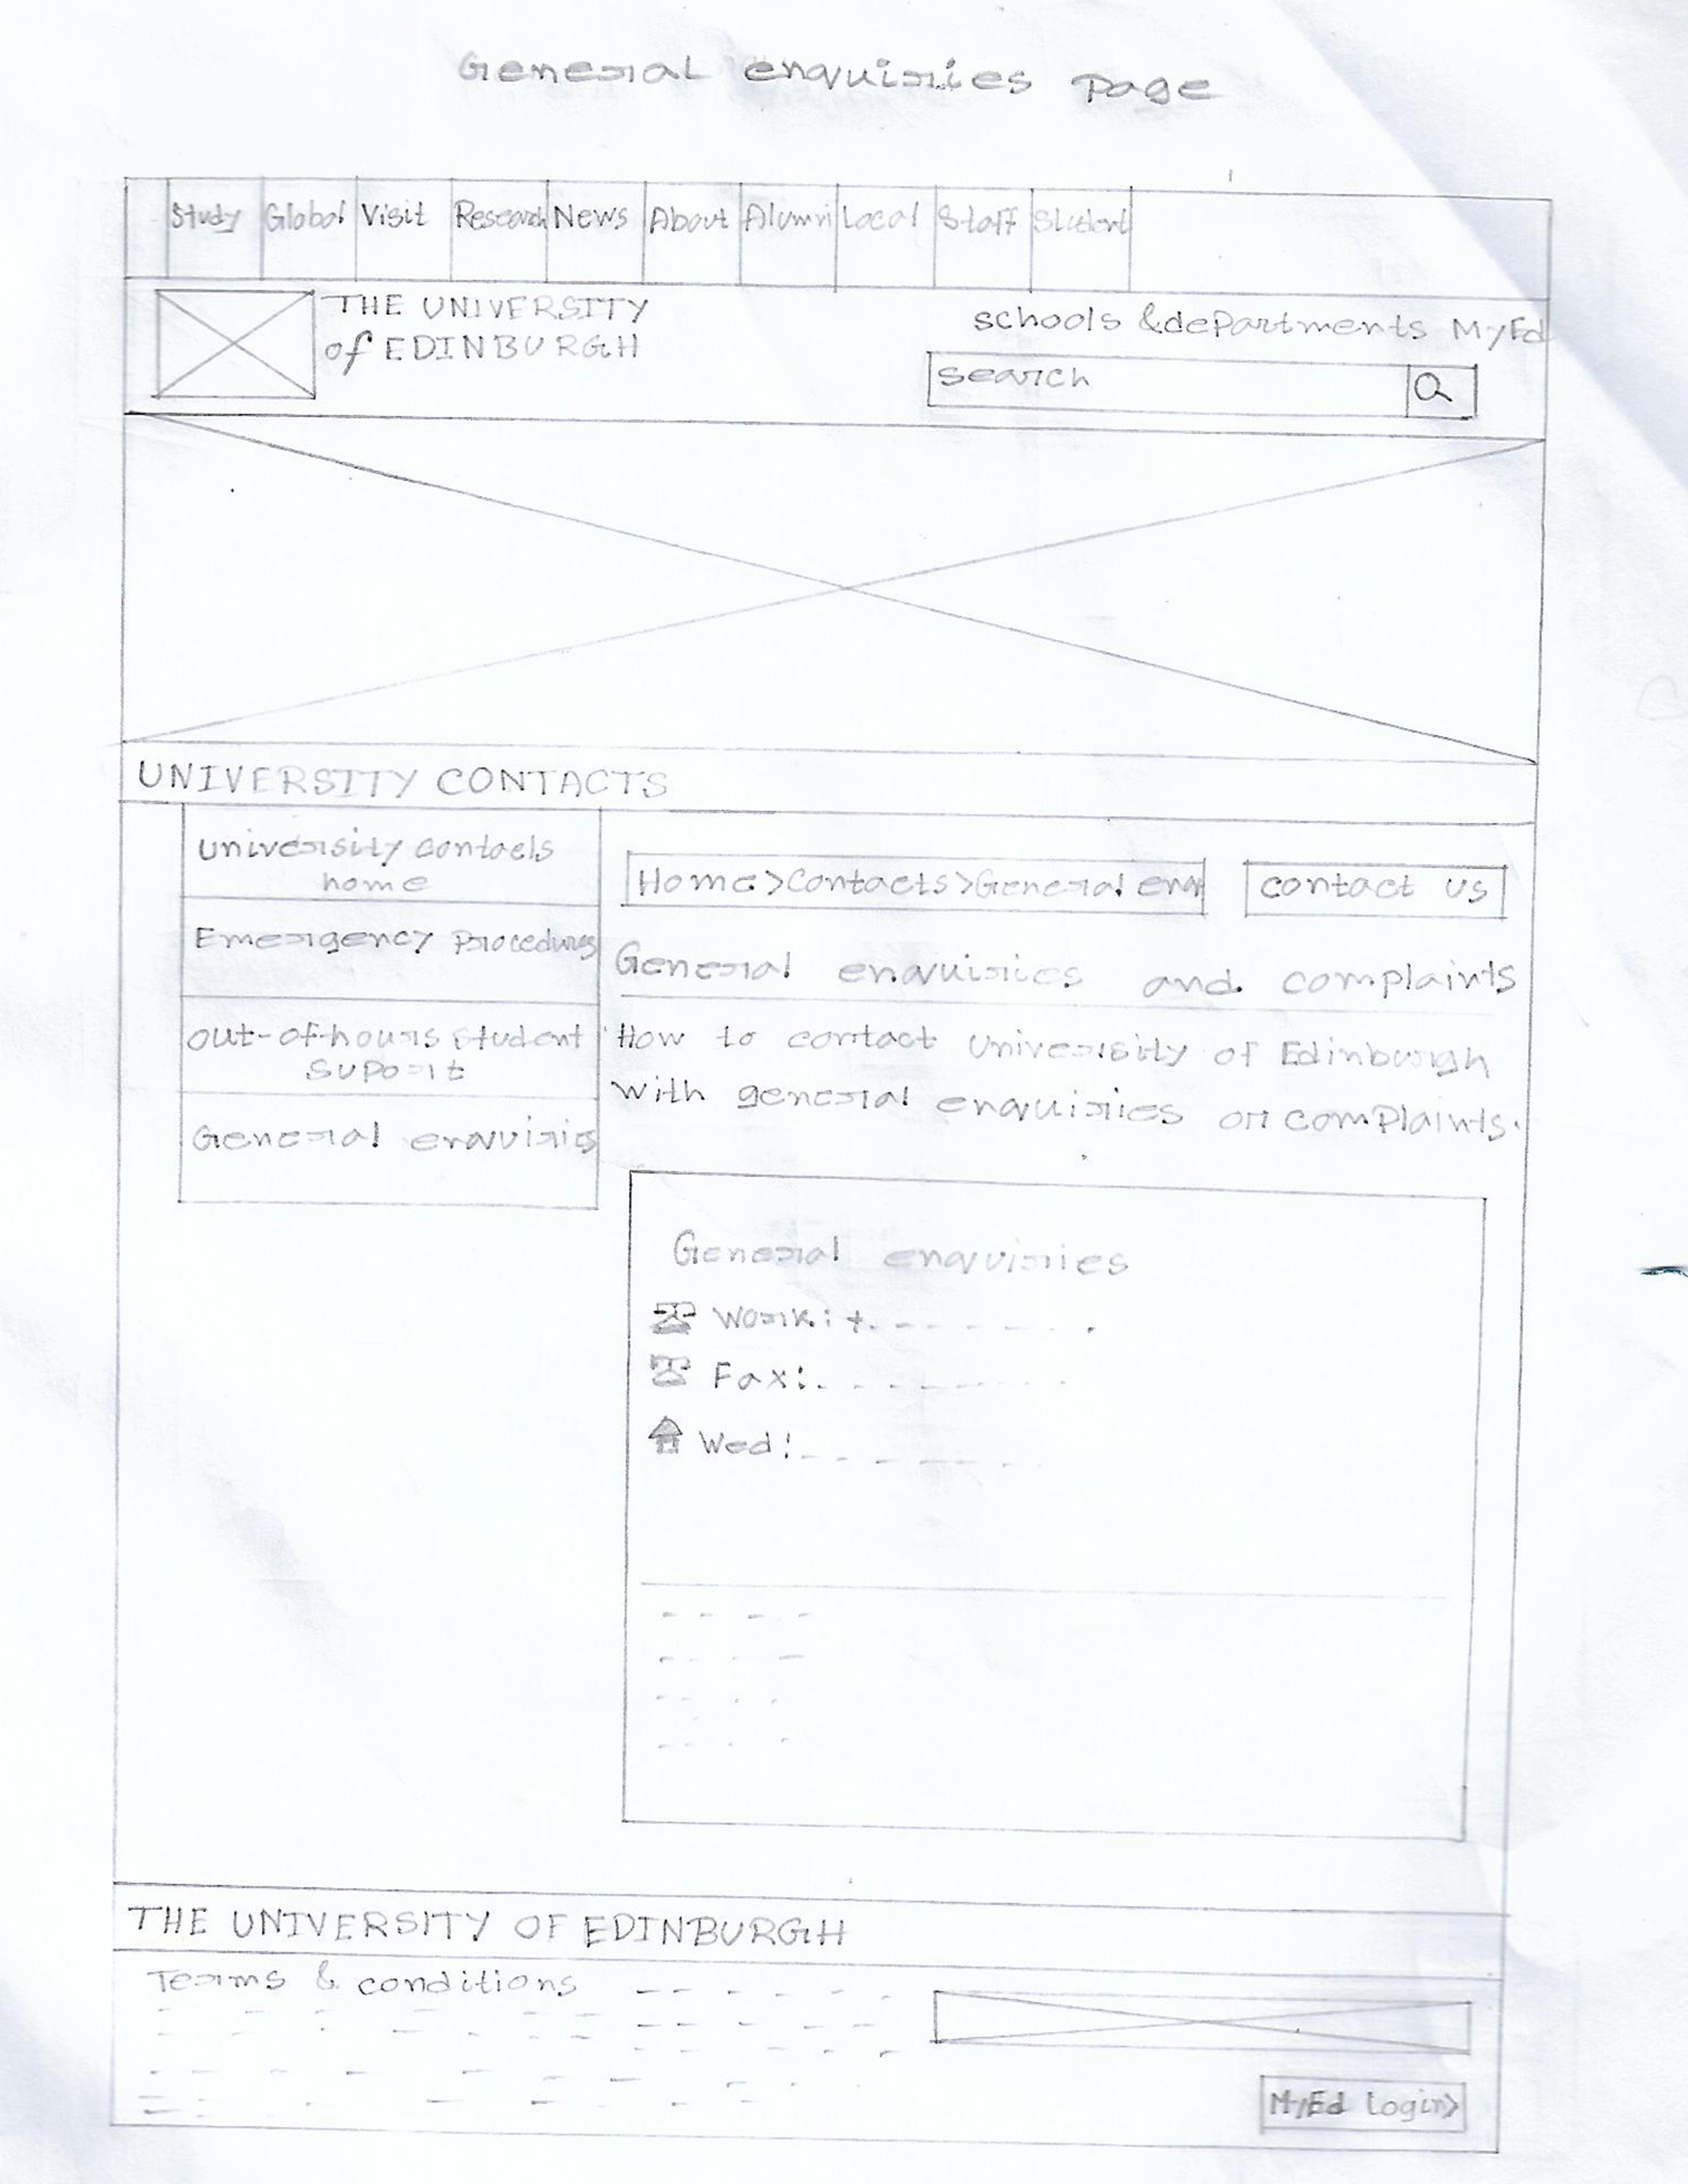 General enquiries Page
Study Global Visit Research News About Alumni Local Staff Student
THE UNIVERSITY
of EDINBURGH
schools & departments MyEd
search
UNIVERSITY CONTACTS
university contacts
home
Emergency Procedures
out-of-hours student
suport
General enquiries
Home>Contacts>General enq
contact us
General enquiries and complaints
How to contact university of Edinburgh
with general enquiries or complaints.
General enquiries
Work: +
Fax:
Wed:
THE UNIVERSITY OF EDINBURGH
Terms & conditions
MyEd login>